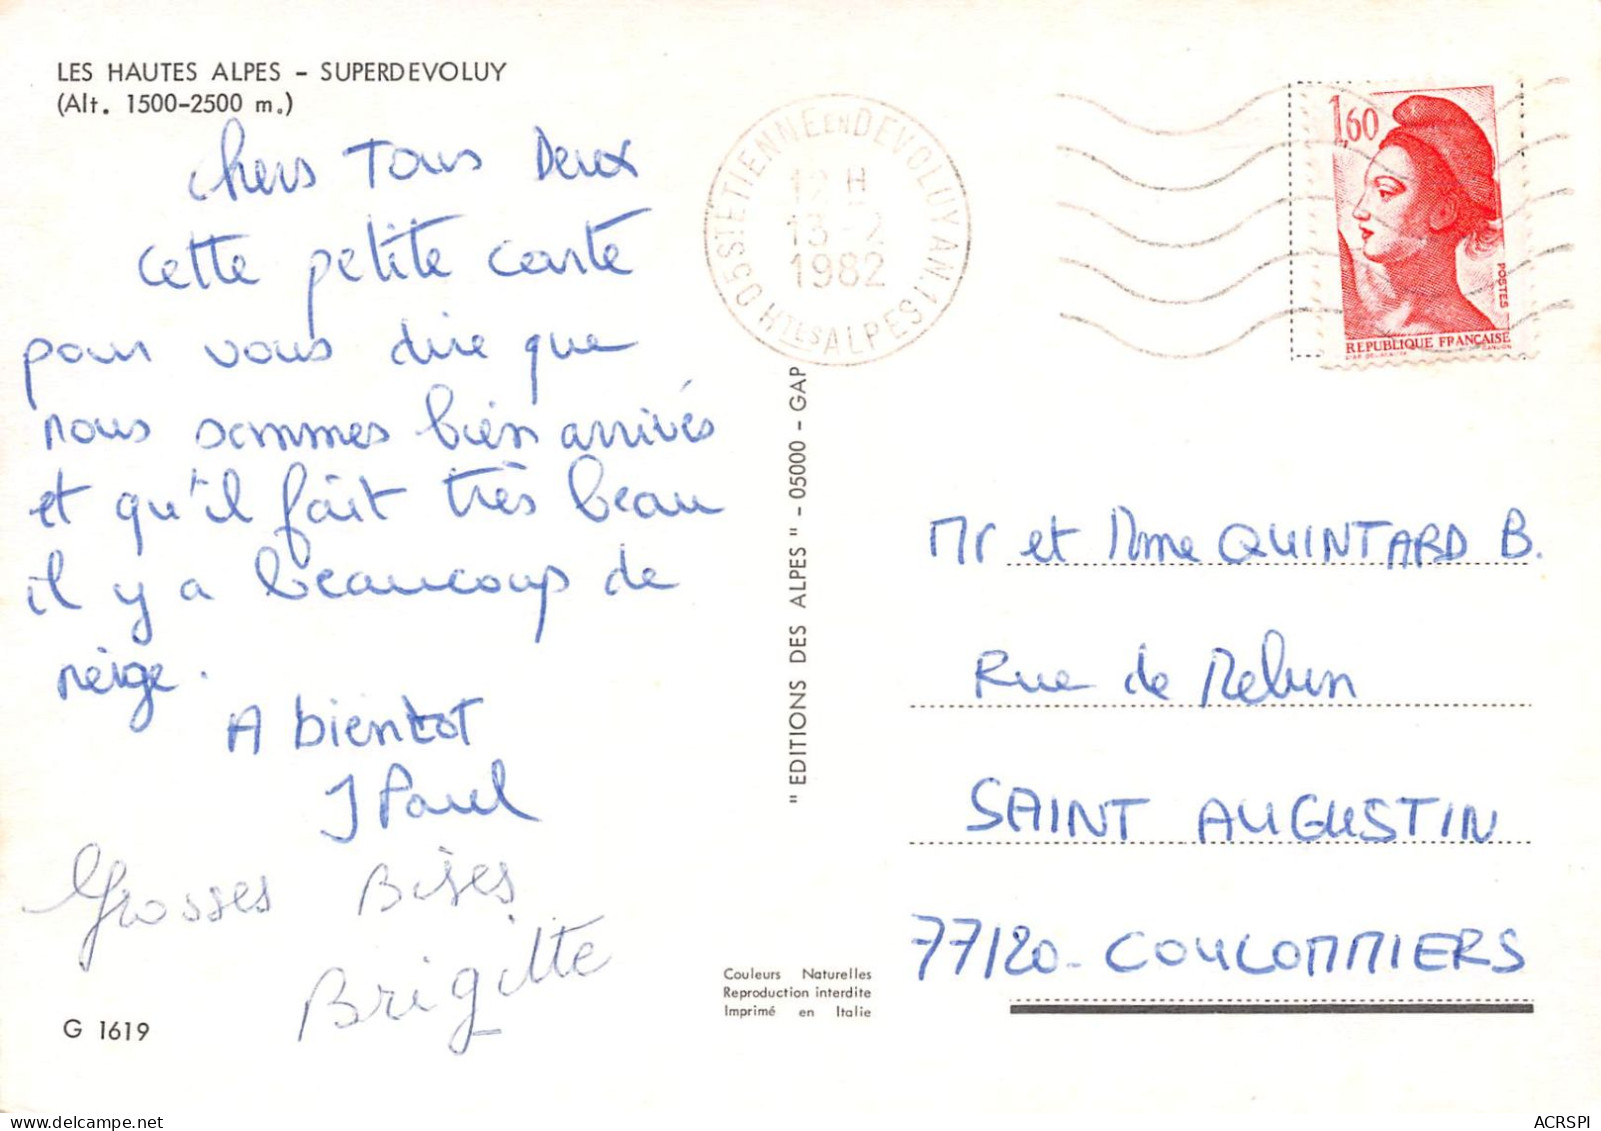 LES HAUTES ALPES - SUPERDEVOLUY
(Alt. 1500-2500 m.)
Chers Tous Deux
cette petite carte
pour vous dire que
nous sommes bien arrivés
et qu'il fait très beau
il y a beaucoup de
neige.
A bientot
J Paul
Grosses Bises
Brigitte
G 1619
05 ST ETIENNE EN DEVOLUY AN.1 Htes ALPES
12 H
13-2
1982
" EDITIONS DES ALPES " - 05000 - GAP
Couleurs Naturelles
Reproduction interdite
Imprimé en Italie
1,60
POSTES
REPUBLIQUE FRANÇAISE
Mr et Mme QUINTARD B.
Rue de Melun
SAINT AUGUSTIN
77120 - COULOMMIERS
ACRSPI